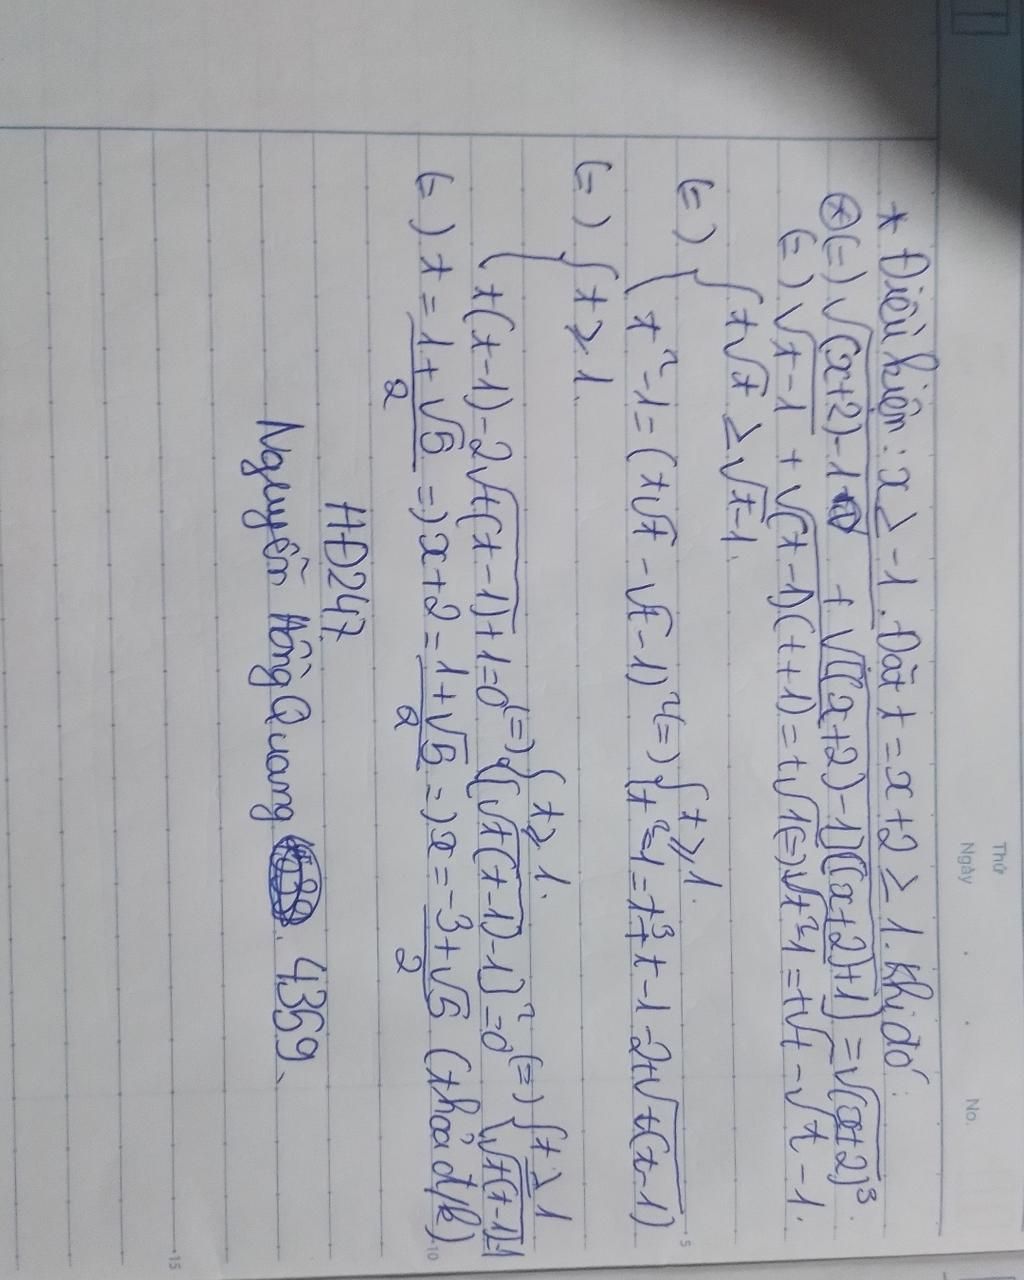 Thứ
Ngày
No.
* Điều kiện: x ≥ -1. Đặt t = x+2 ≥ 1. Khi đó:
⊛ (=) √(x+2)-1 + √((x+2)-1)((x+2)+1) = √(x+2)³.
(=) √t-1 + √(t-1)(t+1) = t√t (=) √t²-1 = t√t - √t-1.
(=) { t√t ≥ √t-1.
{ t²-1 = (t√t - √t-1)² (=) { t ≥ 1.
{ t²-1 = t³+t-1-2t√t(t-1)
(=) { t ≥ 1.
{ t(t-1)-2√t(t-1)+1=0 (=) { t ≥ 1.
{ (√t(t-1)-1)²=0 (=) { t ≥ 1
{ √t(t-1)=1
(=) t = 1+√5/2 =) x+2 = 1+√5/2 =) x = -3+√5/2 (thoả đ/k)
HĐ247
Nguyễn Hồng Quang. 4359.
5
10
15